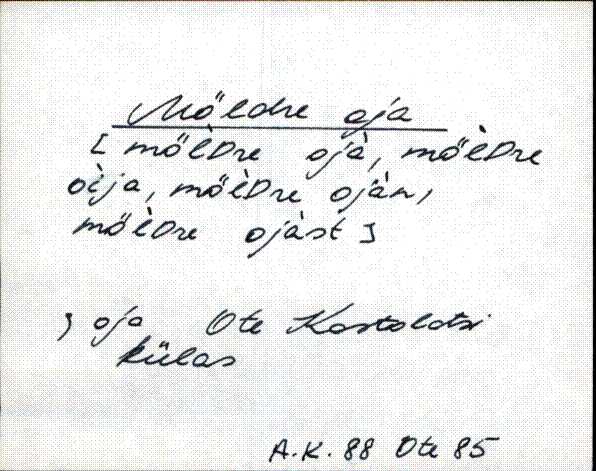 Möldre oja
[ mö̀lDre ojà, mö̀lDre
òija, mö̀lDre ojàn,
mö̀lDre ojàst ]
, oja Ote Kastolatsi
külas
A.K. 88 Ote 85